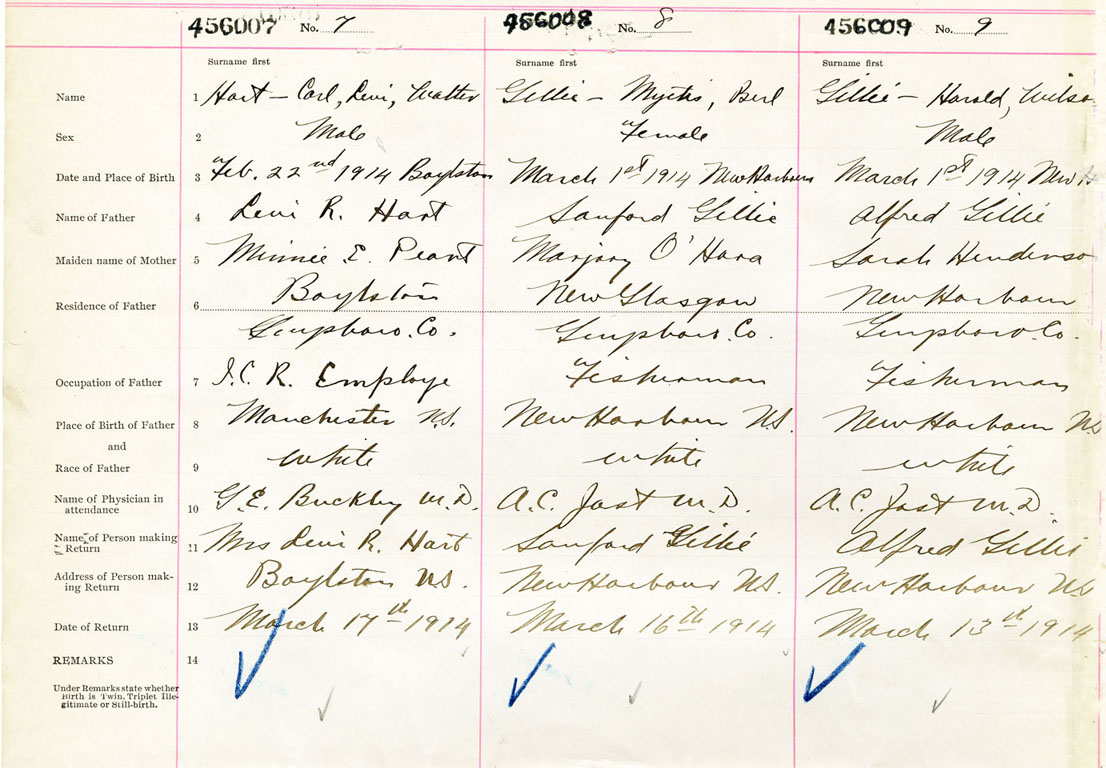 456007 No. 7 456008 No. 8 456009 No. 9
Surname first Surname first Surname first
Name 1 Hart – Carl, Levi, Walter Gillie – Myrtis, Berl Gillie – Harold, Wilso
Sex 2 Male Female Male
Date and Place of Birth 3 Feb. 22nd 1914 Boylston March 1st 1914 New Harbour March 1st 1914 New H
Name of Father 4 Levi R. Hart Sanford Gillie Alfred Gillie
Maiden name of Mother 5 Minnie E. Peart Marjory O'Hara Sarah Henderso
Residence of Father 6 Boylston New Glasgow New Harbour
Guysboro. Co. Guysboro. Co. Guysboro. Co.
Occupation of Father 7 I.C.R. Employe Fisherman Fisherman
Place of Birth of Father 8 Manchester N.S. New Harbour N.S. New Harbour NS
and
Race of Father 9 White White White
Name of Physician in
attendance 10 G.E. Buckley M.D. A.C. Jost M.D. A.C. Jost M.D.
Name of Person making
Return 11 Mrs Levi R. Hart Sanford Gillie Alfred Gillie
Address of Person mak-
ing Return 12 Boylston N.S. New Harbour N.S. New Harbour NS
Date of Return 13 March 17th 1914 March 16th 1914 March 13th 1914
REMARKS 14
Under Remarks state whether
Birth is Twin. Triplet Ille-
gitimate or Still-birth.